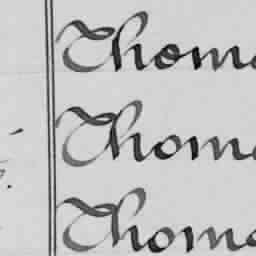 Thoma
Thoma
Thoma